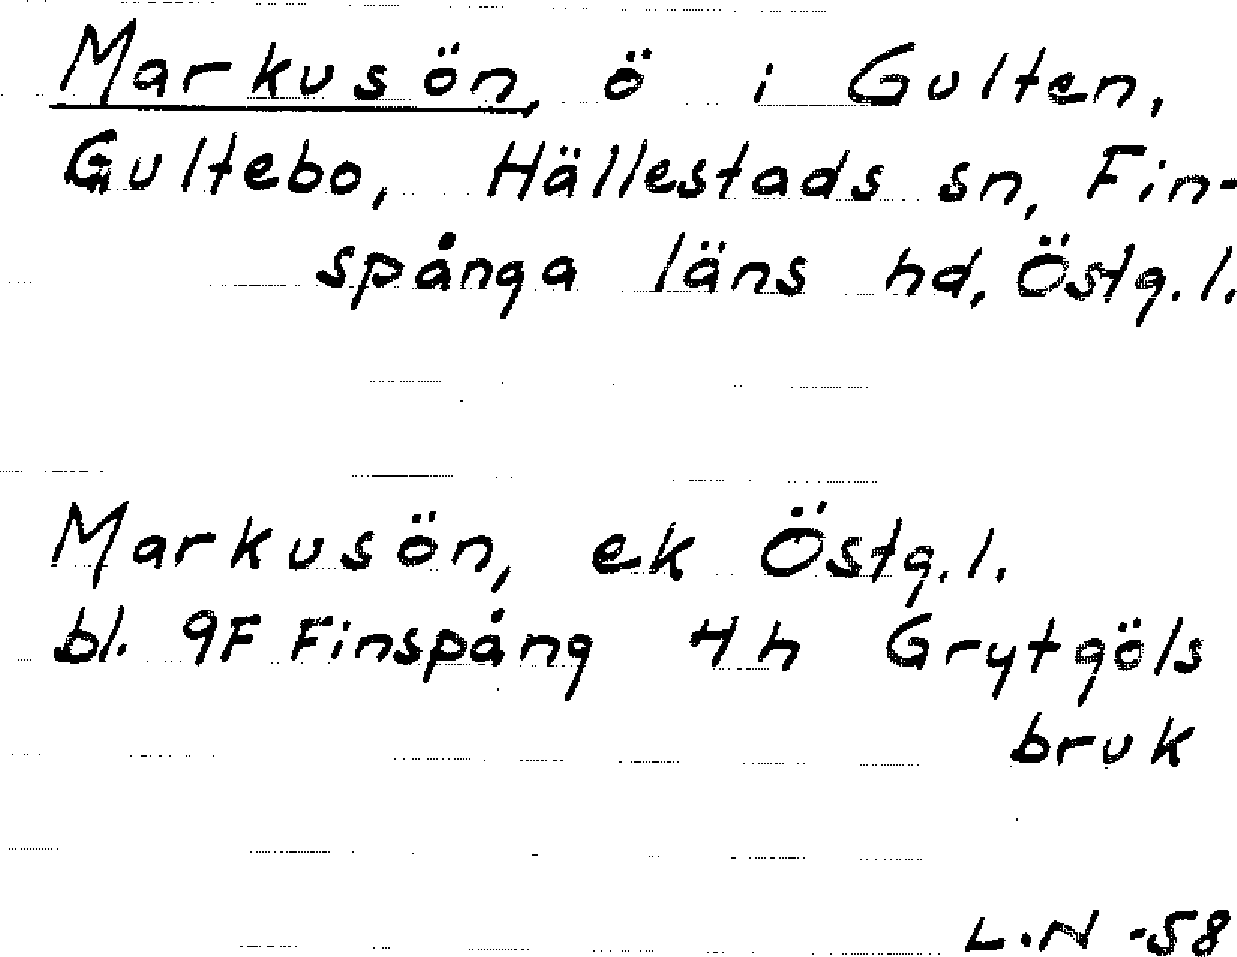 Markusön, ö i Gulten,
Gultebo, Hällestads sn, Fin-
spånga läns hd, Östg. l.
Markusön, ek Östg. l.
bl. 9F Finspång 4h Grytgöls
bruk
L.N -58